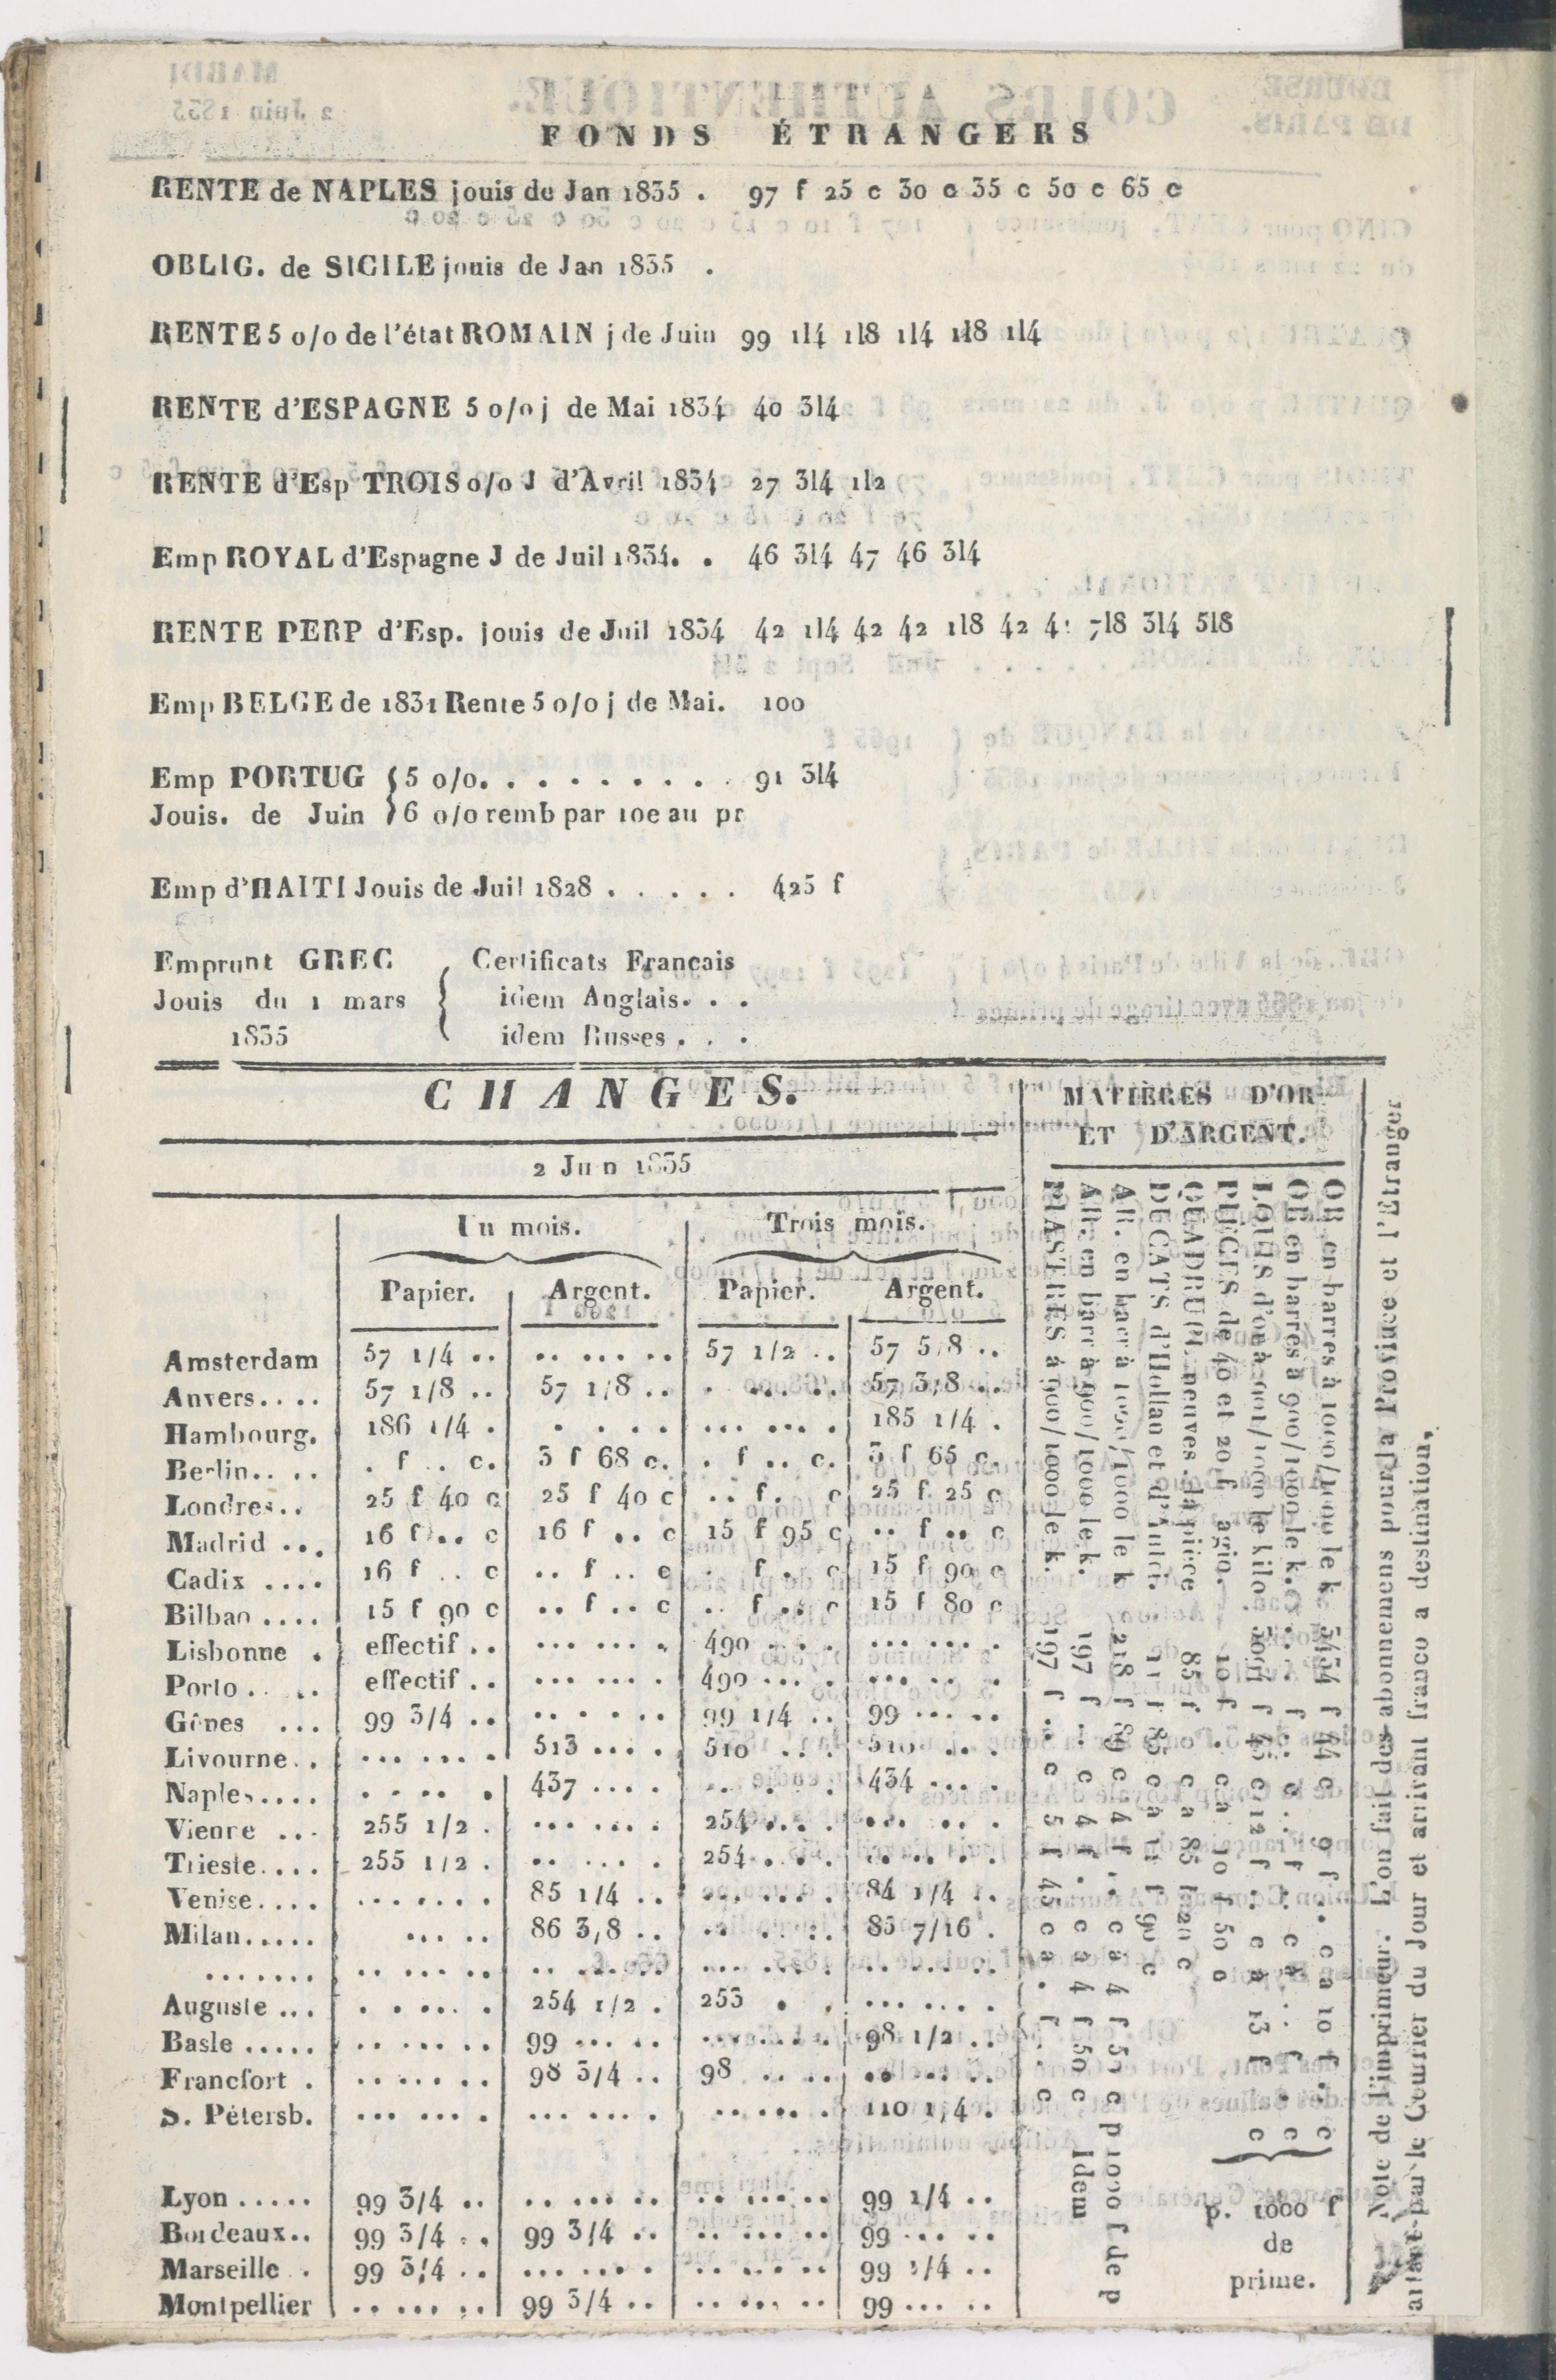 FONDS ÉTRANGERS
RENTE de NAPLES jouis de Jan 1835 . 97 f 25 c 30 c 35 c 50 c 65 c
OBLIG. de SICILE jouis de Jan 1835 .
RENTE 5 o/o de l'état ROMAIN j de Juin 99 1l4 1l8 1l4 1l8 1l4
RENTE d'ESPAGNE 5 o/o j de Mai 1834 40 3l4
RENTE d'Esp TROIS o/o J d'Avril 1834 27 3l4 1l2
Emp ROYAL d'Espagne J de Juil 1834. . 46 3l4 47 46 3l4
RENTE PERP d'Esp. jouis de Juil 1834 42 1l4 42 42 1l8 42 41 7l8 3l4 5l8
Emp BELGE de 1831 Rente 5 o/o j de Mai. 100
Emp PORTUG { 5 o/o. . . . . . . . . 91 3l4
Jouis. de Juin } 6 o/o remb par 10e au pr
Emp d'HAITI Jouis de Juil 1828 . . . . . 425 f
Emprunt GREC { Certificats Francais
Jouis du 1 mars idem Anglais. . .
1835 idem Russes . . .
CHANGES.
2 Jun 1835
Un mois. Trois mois.
Papier. Argent. Papier. Argent.
Amsterdam 57 1/4 .. .. ... .. 57 1/2 .. 57 5/8 ..
Anvers.... 57 1/8 .. 57 1/8 .. . ... .. 57 3/8 ..
Hambourg. 186 1/4 . . . . . ... ... . 185 1/4 .
Berlin.... . f .. c. 3 f 68 c. . f .. c. 3 f 65 c.
Londres.. 25 f 40 c 25 f 40 c .. f. c 25 f 25 c
Madrid ... 16 f .. c 16 f .. c 15 f 95 c .. f .. c
Cadix .... 16 f .. c .. f .. c . f . c 15 f 90 c
Bilbao .... 15 f 90 c .. f .. c .. f .. c 15 f 80 c
Lisbonne . effectif .. ... ... . 490 ... . ... ... .
Porto .. .. effectif .. ... ... . 490 ... . ... .. .
Gênes ... 99 3/4 .. .. . . .. 99 1/4 .. 99 ... ..
Livourne.. ... ... . 513 ... . 510 ... . 510 .. .
Naples.... . . .. . 437 .... .. ... . 434 ... .
Vienne ... 255 1/2 . ... ... . 254 ... . ... .. .
Trieste.... 255 1/2 . .. .. . . 254 . . . .. ... .
Venise.... ... ... . 85 1/4 .. ... ... . 84 1/4 ..
Milan..... ... .. 86 3/8 .. .. ... .. 85 7/16 .
....... .. ... .. .. ... .. ... ... . .. ... ..
Auguste ... . . ... . 254 1/2 . 253 . . ... ... .
Basle ..... .. ... .. 99 ... .. ... ... . 98 1/2 ..
Francfort . .. ... .. 98 3/4 .. 98 .. .. .. ... ..
S. Pétersb. ... ... . ... ... . .. ... . 110 1/4 .
Lyon ..... 99 3/4 .. .. ... .. .. ... .. 99 1/4 ..
Bordeaux.. 99 3/4 .. 99 3/4 .. .. ... .. 99 ... ..
Marseille . 99 3/4 .. ... ... . .. ... .. 99 1/4 ..
Montpellier .. ... .. 99 3/4 .. .. ... .. 99 ... ..
MATIERES D'OR
ET D'ARGENT.
OR en barres à 1000/1000 le k 3434 f 44 c 9 f .. c a 10 f . c
OR en barres à 900/1000 le k. . . f . c . . f . c a . . f . c
LOUIS d'or à 901/1000 le kilo. f 45 c 12 f . c a 13 f . c
PIÈCES de 40 et 20 f agio. 10 f . c a 10 f 50 c
QUADRUPL neuves la pièce 85 f c a 85 f 20 c
DUCATS d'Hollan et d'Autri. 11 f 85 c a 11 f 90 c
AR. en barr à 1000/1000 le k 218 f 89 c 4 f . c a 4 f 50 c p 1000 f de p
AR. en barr à 900/1000 le k. 197 f . c 4 f . c a 4 f 50 c Idem
PIASTRES à 900/1000 le k. 197 f . c 5 f 45 c a . f . c
p. 1000 f
de
prime.
Note de l'imprimeur. L'on fait des abonnemens pour la Province et l'Etranger
partant par le Courrier du Jour et arrivant franco a destination,